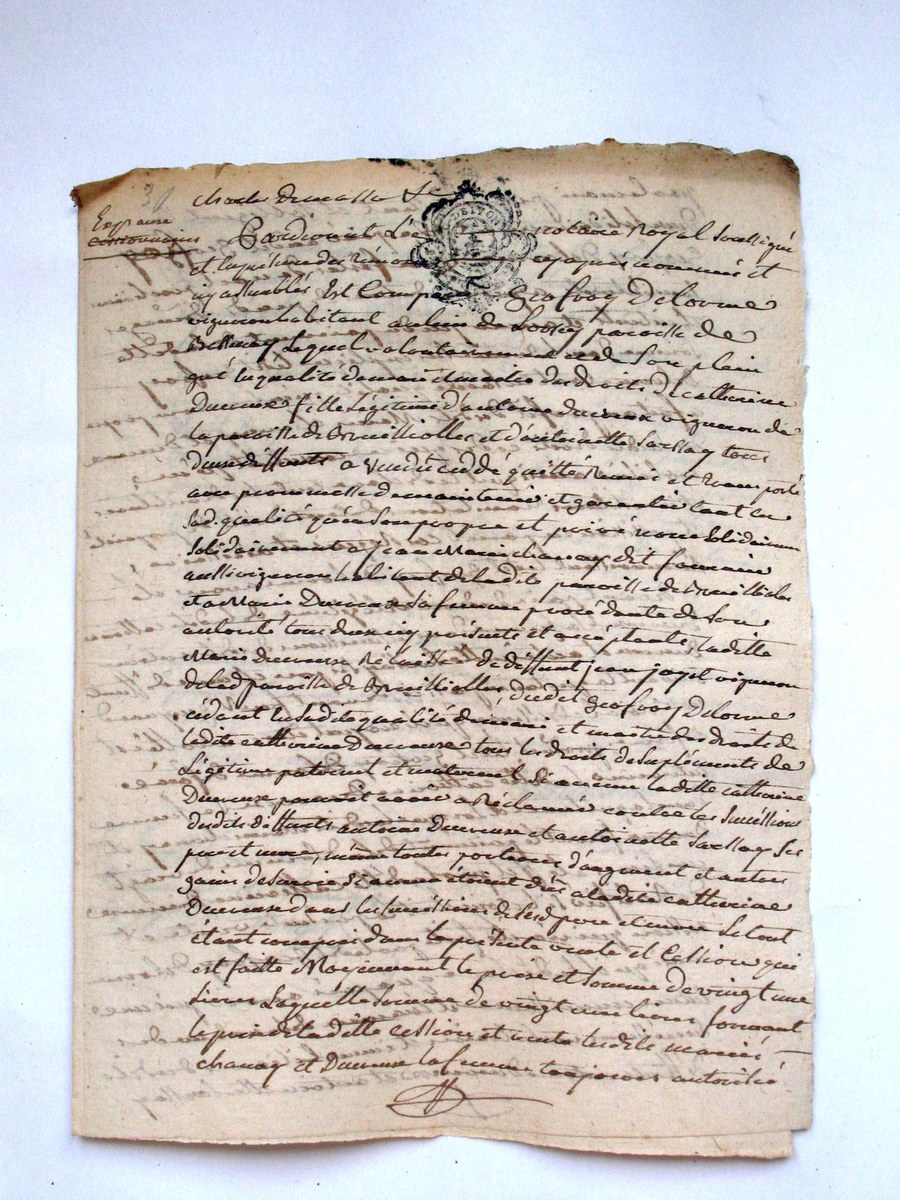 30
Exp aux
cessionnaires
Pardevant Le notaire Royal Soussigné
et En présence des témoins cy apres nommés et
Est Comparu Geofroy Delorme
vigneron habitant au lieu de paroisse de
Bessenay Lequel volontairement et de Son plein
gré En qualité de mari et maitre des droits De Catherine
Ducreux fille Légitime d'antoine ducreux vigneron de
la paroisse de Brussiolles et d'antoinette Sarsay tous
deux deffunts a Vendu cedé quitté Remis et Transporté
avec promesse de maintenir et garantir tant en
Sad. qualité qu'en Son propre et privé nom Solidairement
Solidairement a Jean Marie chanay dit
aussi vigneron habitant de Ladite paroisse de Brussiolles
et a Marie Ducreux Sa femme procédante de Son
autorité tous deux icy présents et acceptants, Ladite
Marie Ducreuse de deffunt jean joyet vigneron
de lad. paroisse de Brussiolles, dudit Geofroy Delorme
cédant En Sadite qualité de mari et maitre des droits de
Ladite Catherine Ducreuse tous les droits de Supléments de
Légitime paternel et maternel Sy aucun Ladite Catherine
Ducreuse pouvoit avoir a Réclamer contre les Successions
desdits deffunts antoine Ducreuse et antoinette Sarsay Ses
pere et mere, même toutes portions d'augment et autres
gains de Survie Si aucun étoient dûs a Ladite Catherine
Ducreuse dans les Successions de Sesd. pere et mere Le tout
étant compris dans la présente vente et Cession qui
est faite Moyennant le prix et Somme de vingt une
Livres Laquelle Somme de vingt une livres formant
le prix de Ladite cession et vente lesdits mariés
chanay et Ducreuse La femme toujours autorisée